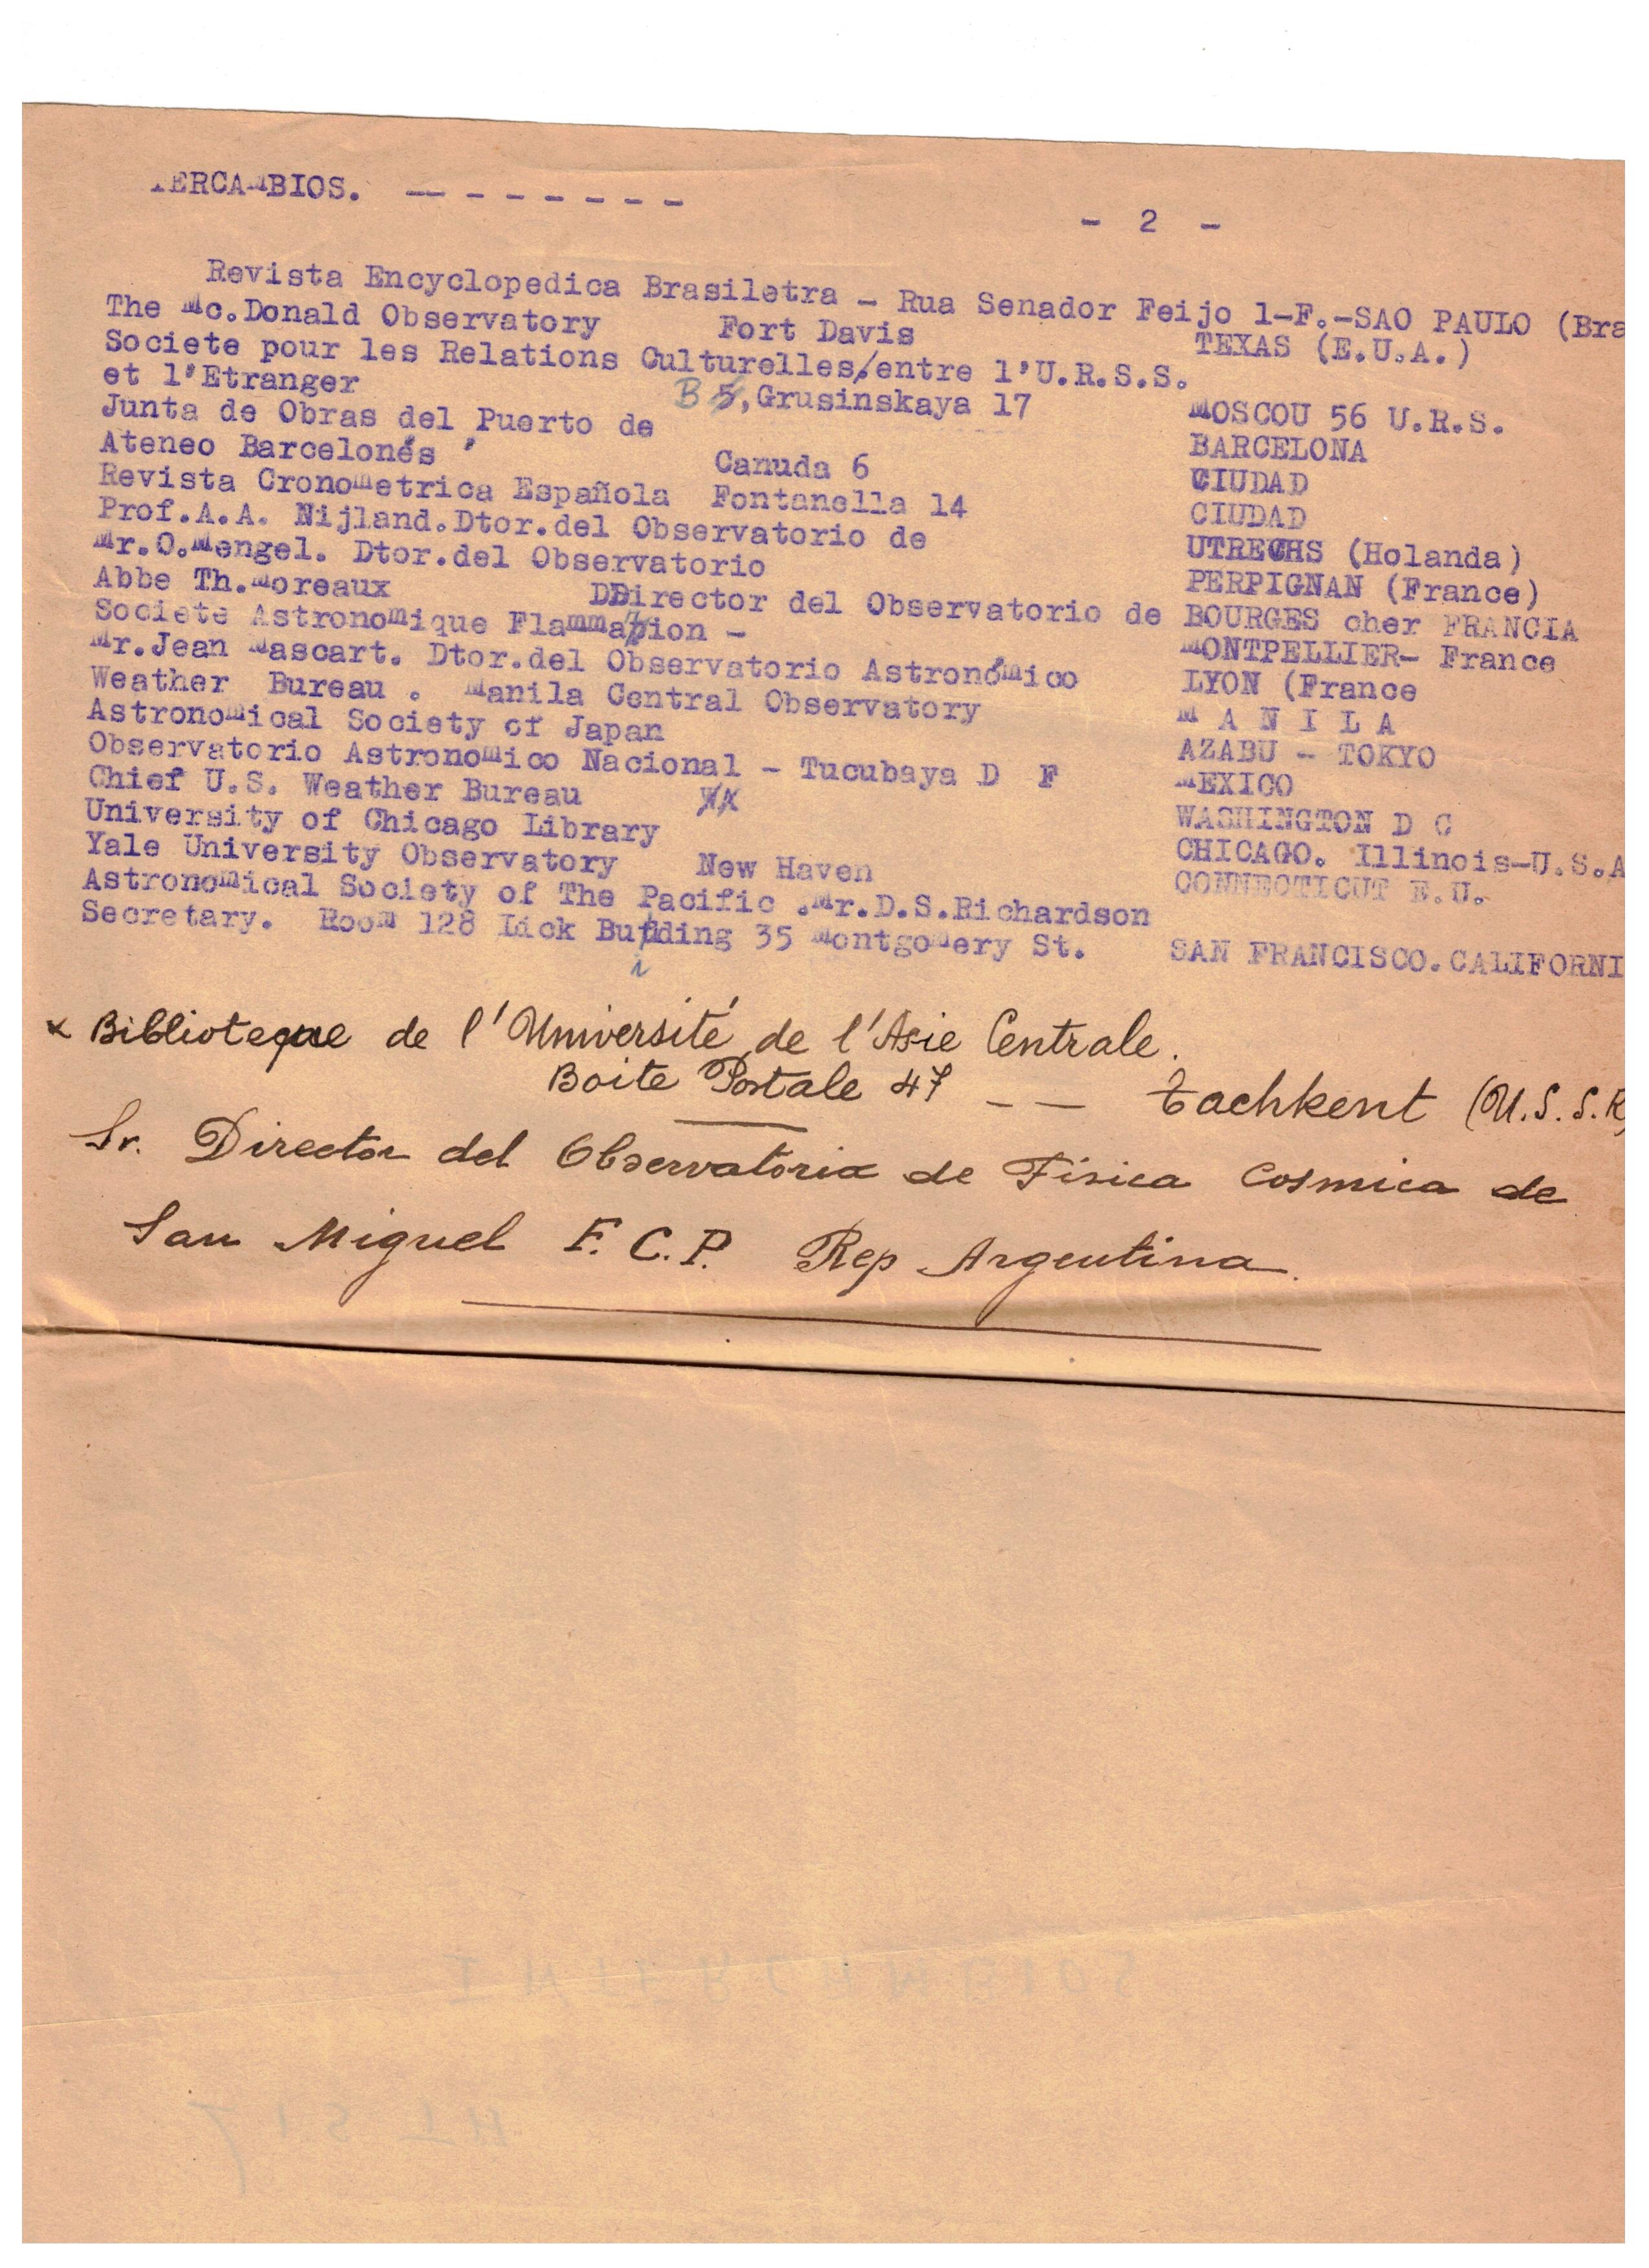 TERCAMBIOS. — - - - - - -
- 2 -
Revista Encyclopedica Brasiletra - Rua Senador Feijo 1-F.-SAO PAULO (Bra
The Mc.Donald Observatory Fort Davis TEXAS (E.U.A.)
Societe pour les Relations Culturelles/entre l'U.R.S.S.
et l'Etranger B 5, Grusinskaya 17 MOSCOU 56 U.R.S.
Junta de Obras del Puerto de BARCELONA
Ateneo Barcelonés Canuda 6 CIUDAD
Revista Cronometrica Española Fontanella 14 CIUDAD
Prof.A.A. Nijland.Dtor.del Observatorio de UTRECHS (Holanda)
Mr.O.Mengel. Dtor.del Observatorio PERPIGNAN (France)
Abbe Th.Moreaux DDirector del Observatorio de BOURGES cher FRANCIA
Societe Astronomique Flammarion - MONTPELLIER- France
Mr.Jean Mascart. Dtor.del Observatorio Astronómico LYON (France
Weather Bureau . Manila Central Observatory M A N I L A
Astronomical Society of Japan AZABU - TOKYO
Observatorio Astronomico Nacional - Tucubaya D F MEXICO
Chief U.S. Weather Bureau WASHINGTON D C
University of Chicago Library CHICAGO. Illinois-U.S.A
Yale University Observatory New Haven CONNECTICUT E.U.
Astronomical Society of The Pacific .Mr.D.S.Richardson
Secretary. Room 128 Lick Building 35 Montgomery St. SAN FRANCISCO.CALIFORNI
x Biblioteque de l'Université de l'Asie Centrale.
Boite Postale 47 — — Tachkent (U.S.S.R)
Sr. Director del Observatorio de Fisica Cosmica de
San Miguel F.C.P. Rep Argentina.
INTERCAMBIOS